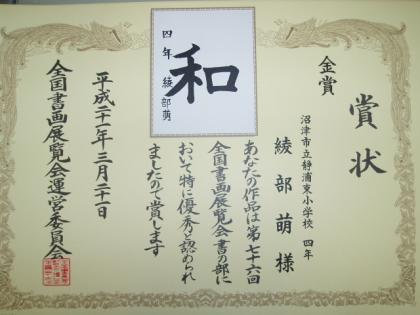 賞状
金賞
沼津市立静浦東小学校 四年
綾部萌様
和
四年 綾部萌
あなたの作品は第七十六回
全国書画展覧会書の部に
おいて特に優秀と認められ
ましたので賞します
平成二十一年三月二十一日
全国書画展覧会運営委員会